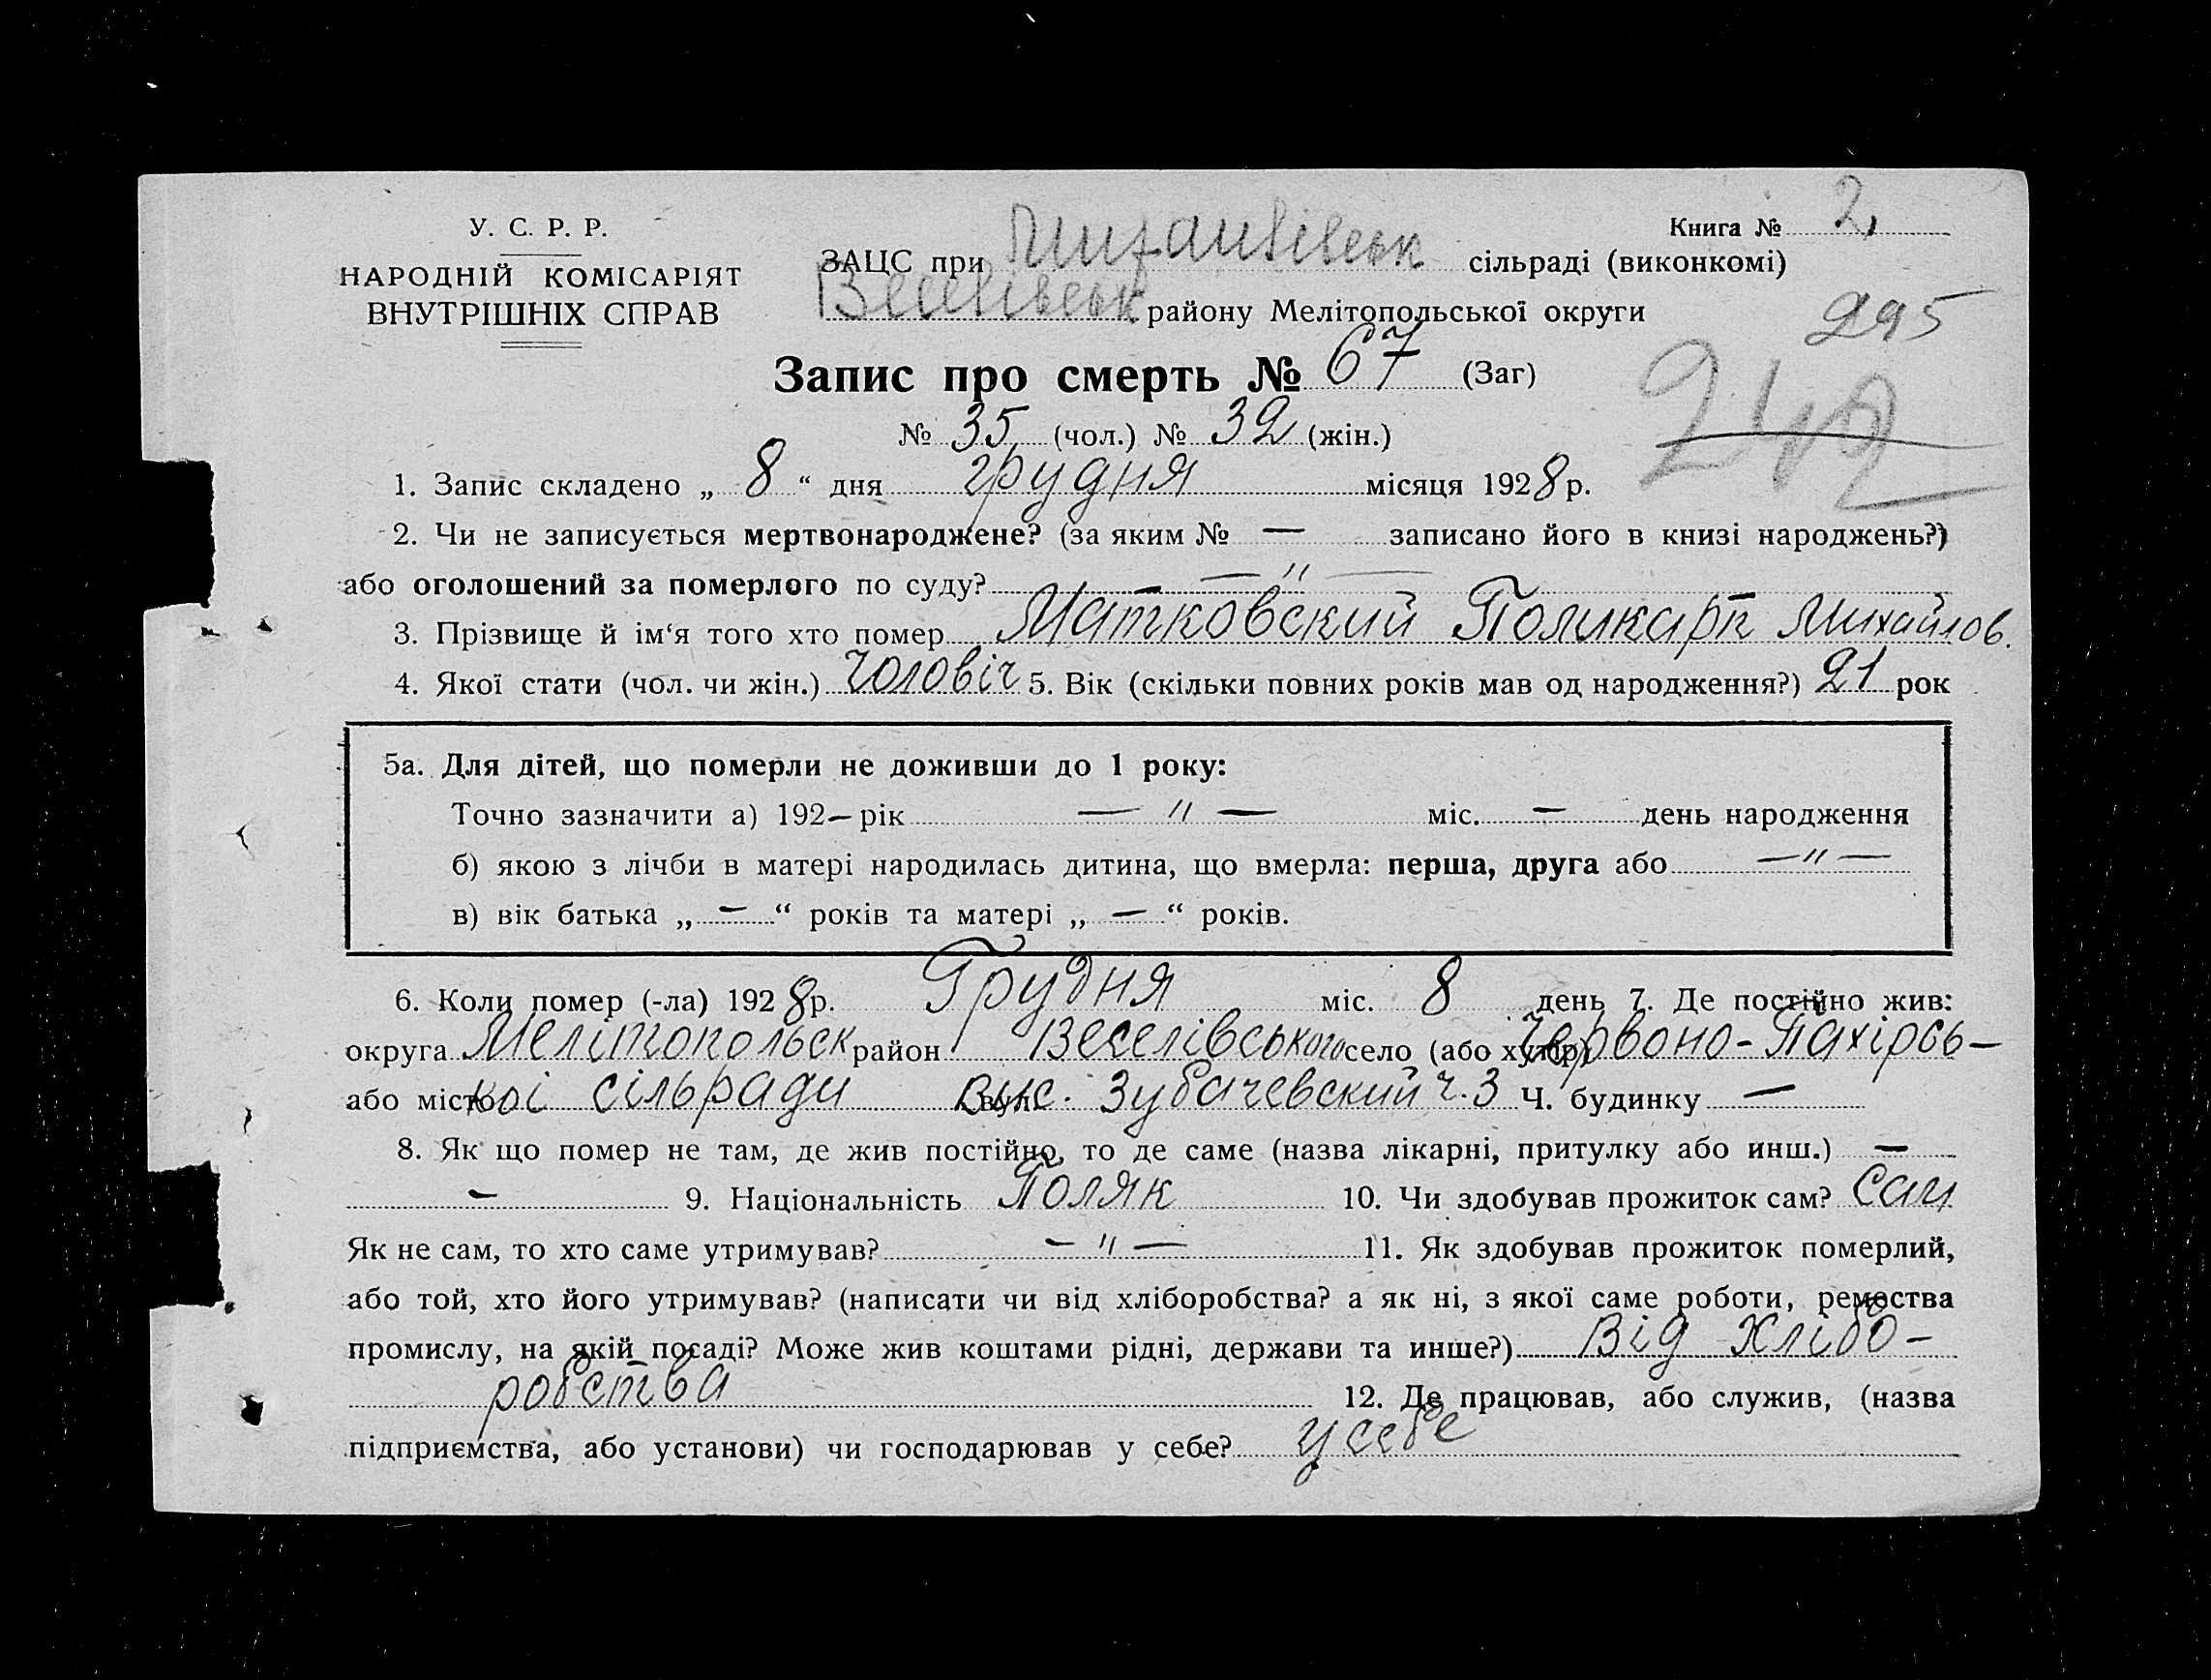 У. С. Р. Р.
НАРОДНІЙ КОМІСАРІЯТ
ВНУТРІШНІХ СПРАВ
Книга № 2,
ЗАЦС при сільраді (виконкомі)
Веселівськ району Мелітопольської округи
295
Запис про смерть № 67 (Заг)
242
№ 35 (чол.) № 32 (жін.)
1. Запис складено „ 8 “ дня грудня місяця 1928 р.
2. Чи не записується мертвонароджене? (за яким № — записано його в книзі народжень?)
або оголошений за померлого по суду? — " —
3. Прізвище й ім‘я того хто помер Матковский Поликарп Михайлов.
4. Якої стати (чол. чи жін.) Чоловіч 5. Вік (скільки повних років мав од народження?) 21 рок
5а. Для дітей, що померли не доживши до 1 року:
Точно зазначити а) 192— рік — " — міс. — день народження
б) якою з лічби в матері народилась дитина, що вмерла: перша, друга або — " —
в) вік батька „ — “ років та матері „ — “ років.
6. Коли помер (-ла) 1928 р. Грудня міс. 8 день 7. Де постійно жив:
округа Мелітопольськ район Веселівського село (або хутір) Червоно-Пахірсь-
або місто кої сільради вул. Вис. Зубачевский ч. 3 Ч. будинку —
8. Як що помер не там, де жив постійно, то де саме (назва лікарні, притулку або инш.) —
— 9. Національність Поляк 10. Чи здобував прожиток сам? Сам
Як не сам, то хто саме утримував? — " — 11. Як здобував прожиток померлий,
або той, хто його утримував? (написати чи від хліборобства? а як ні, з якої саме роботи, ремества
промислу, на якій посаді? Може жив коштами рідні, держави та инше?) Від хлібо-
робства 12. Де працював, або служив, (назва
підприємства, або установи) чи господарював у себе? у себе